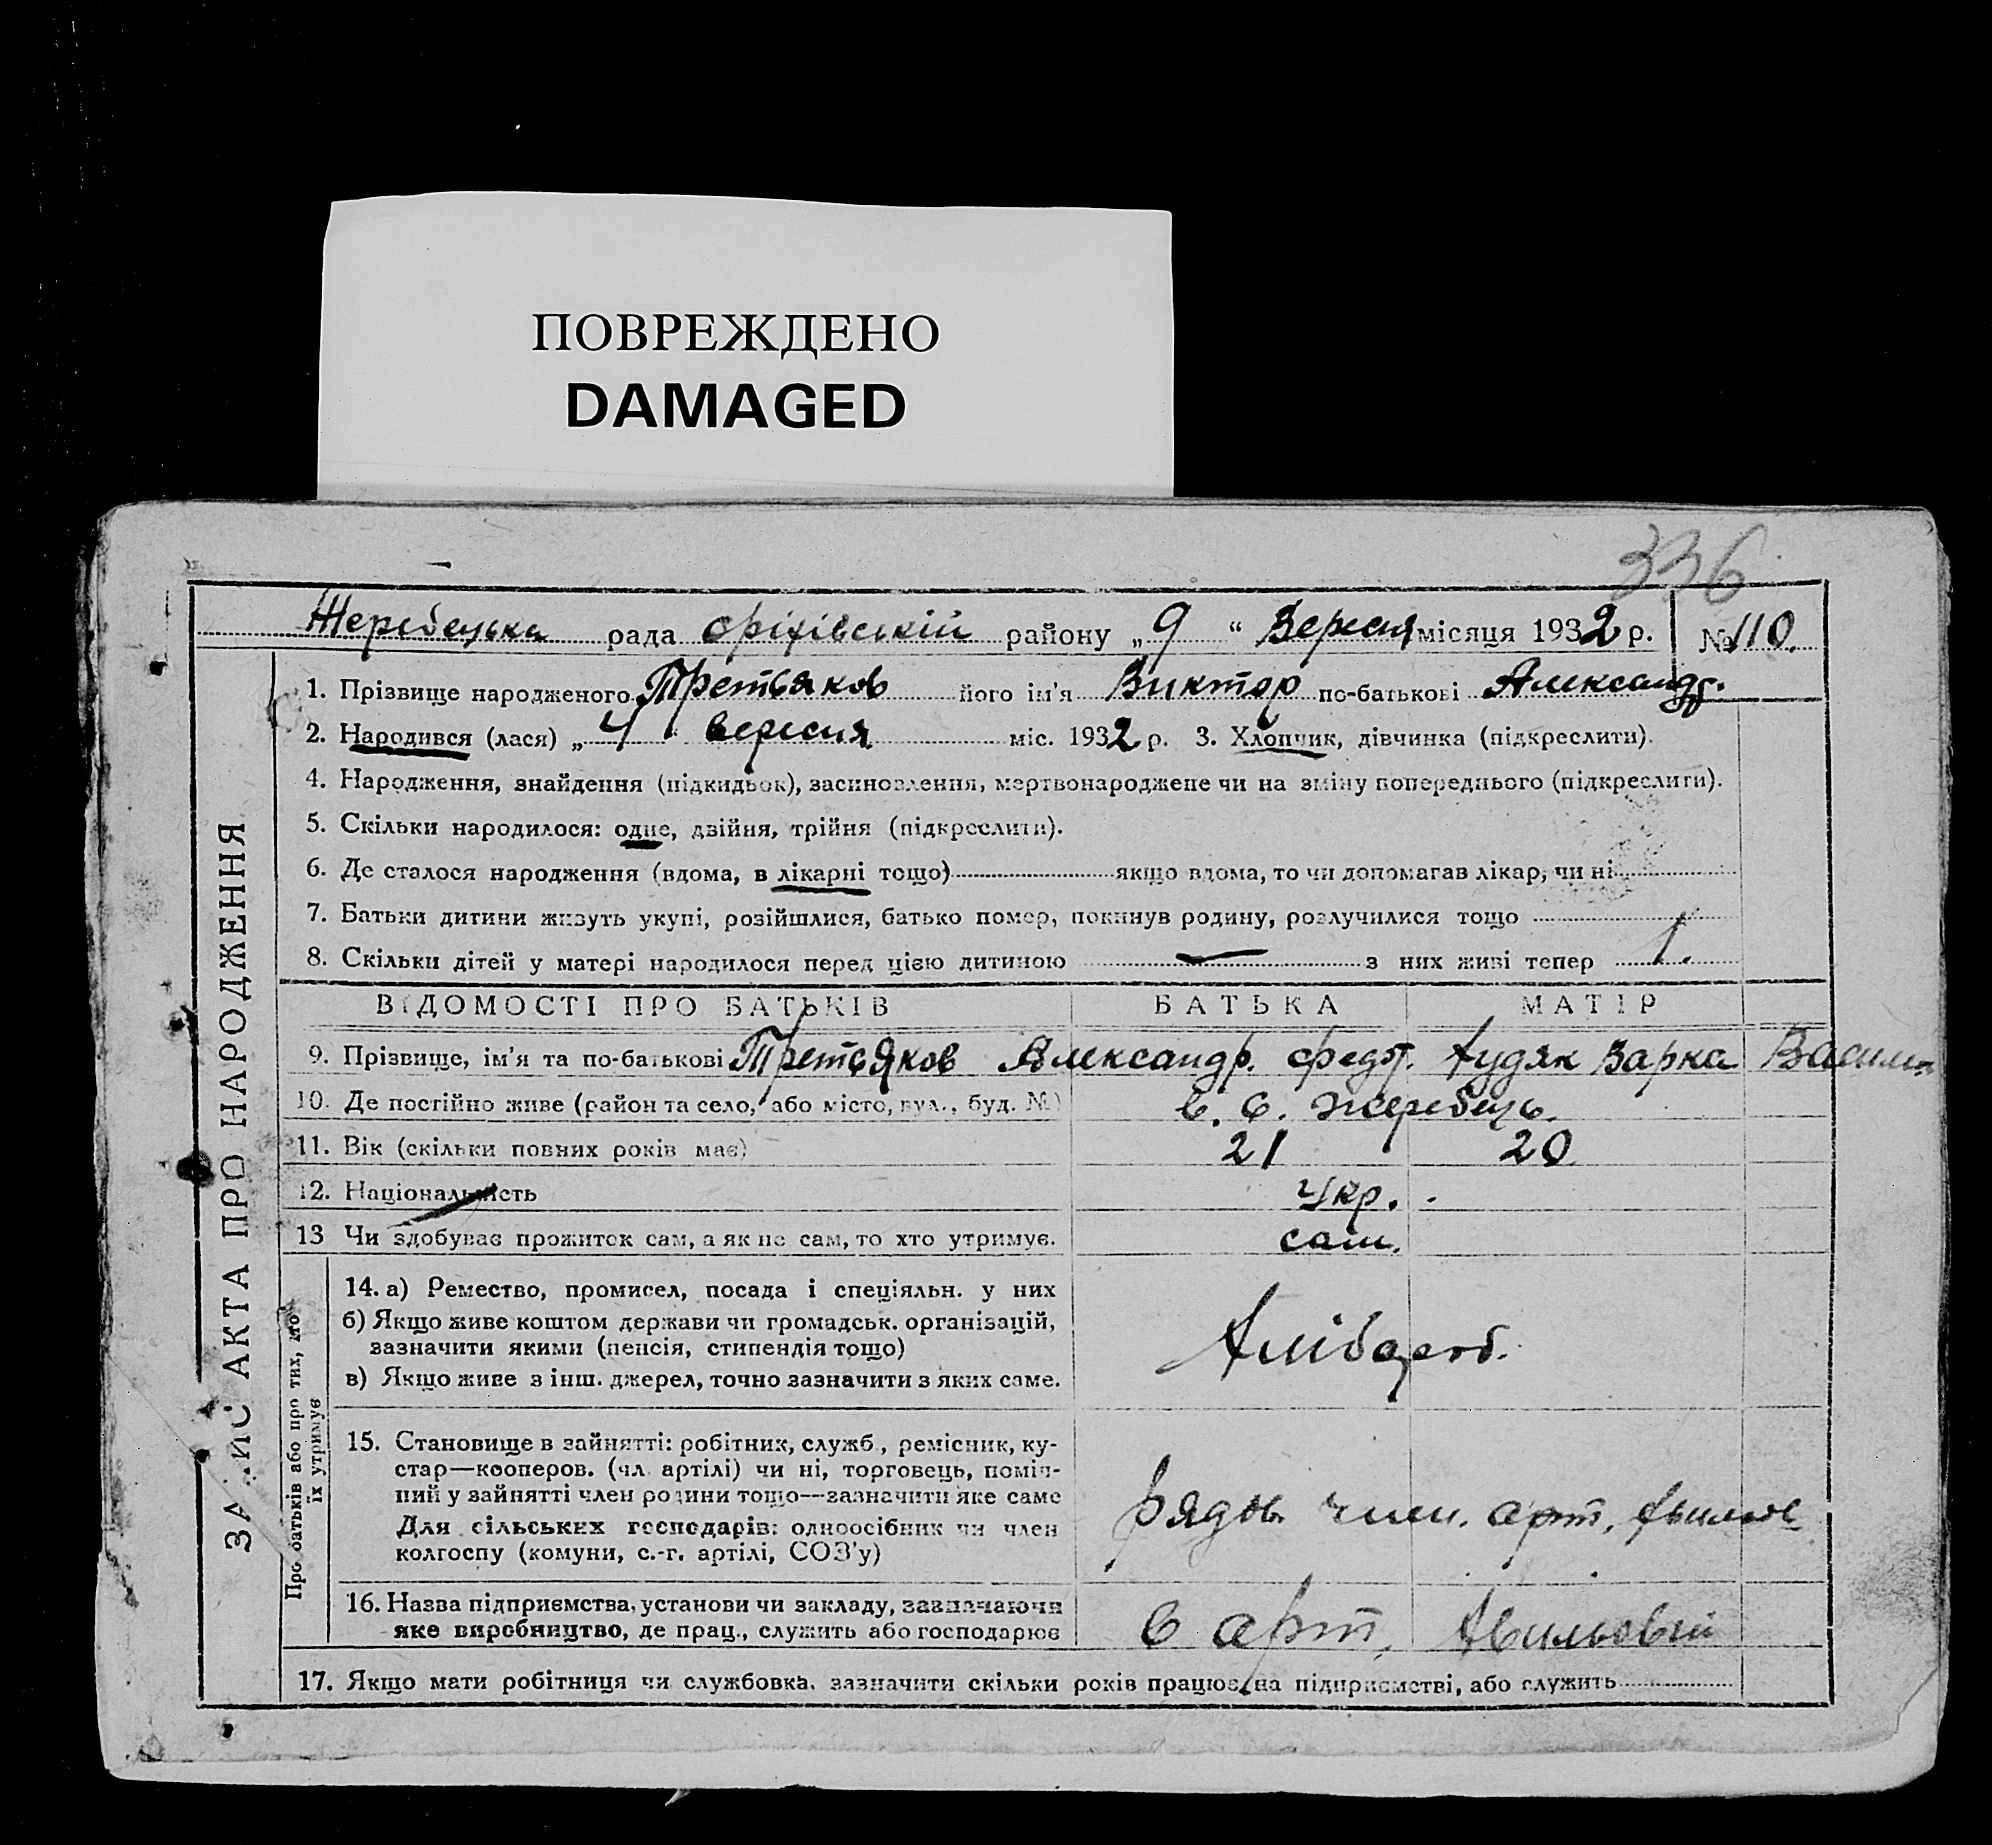 ПОВРЕЖДЕНО
DAMAGED
336
Жеребецька рада оріхівській району „9“ Вересня місяця 1932 р. № 110.
1. Прізвище народженого Третьяков його ім'я Виктор по-батькові Александр.
2. Народився (лася) „4 вересня міс. 1932 р. 3. Хлопчик, дівчинка (підкреслити).
4. Народження, знайдення (підкидьок), засиновлення, мертвонароджене чи на зміну попереднього (підкреслити).
5. Скільки народилося: одне, двійня, трійня (підкреслити).
6. Де сталося народження (вдома, в лікарні тощо) якщо вдома, то чи допомагав лікар, чи ні
7. Батьки дитини живуть укупі, розійшлися, батько помер, покинув родину, розлучилися тощо
8. Скільки дітей у матері народилося перед цією дитиною — з них живі тепер 1.
ЗАПИС АКТА ПРО НАРОДЖЕННЯ
ВІДОМОСТІ ПРО БАТЬКІВ БАТЬКА МАТІР
9. Прізвище, ім'я та по-батькові Третьяков Александр. Федот. Худяк Варка
10. Де постійно живе (район та село, або місто, вул., буд. №) в. с. Жеребець.
11. Вік (скільки повних років має) 21 20
12. Національність Укр.
13 Чи здобуває прожиток сам, а як не сам, то хто утримує. сам.
Про батьків або про тих, хто
їх утримує
14. а) Ремество, промисел, посада і спеціяльн. у них
б) Якщо живе коштом держави чи громадськ. організацій,
зазначити якими (пенсія, стипендія тощо)
в) Якщо живе з інш. джерел, точно зазначити з яких саме.
Хлібороб.
15. Становище в зайнятті: робітник, служб., ремісник, ку-
стар—кооперов. (чл. артілі) чи ні, торговець, поміч-
ний у зайнятті член родини тощо—зазначити яке саме
Для сільських господарів: одноосібник чи член
колгоспу (комуни, с.-г. артілі, СОЗ'у)
рядов. член. арт.
16. Назва підприємства, установи чи закладу, зазначаючи
яке виробництво, де прац., служить або господарює
в арт.
17. Якщо мати робітниця чи службовка, зазначити скільки років працює на підприємстві, або служить